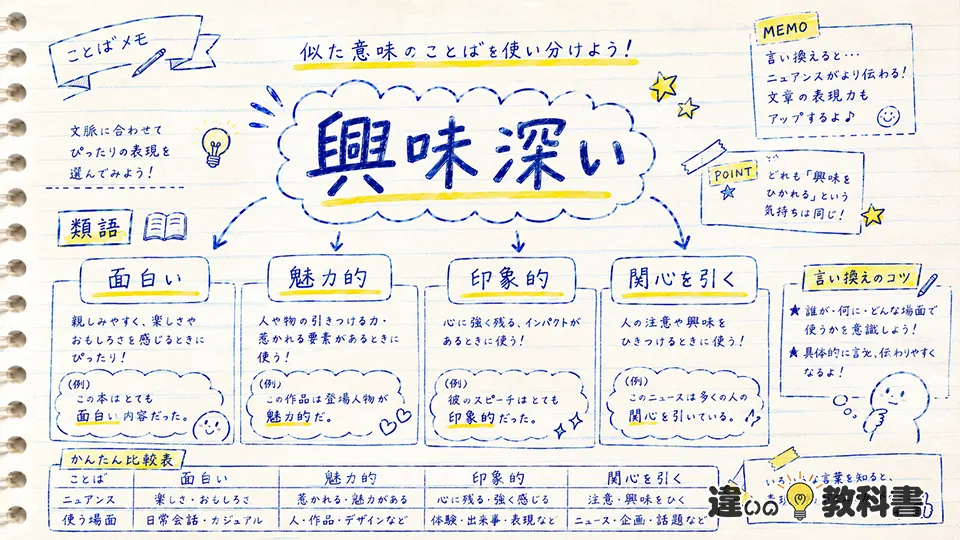 ことばメモ
似た意味のことばを使い分けよう!
MEMO
言い換えると…
ニュアンスがより伝わる!
文章の表現力も
アップするよ♪
文脈に合わせて
ぴったりの表現を
選んでみよう!
興味深い
POINT
どれも「興味を
ひかれる」という
気持ちは同じ!
類語
面白い
親しみやすく、楽しさや
おもしろさを感じるときに
ぴったり!
(例)
この本はとても
面白い内容だった。
魅力的
人や物の引きつける力・
惹かれる要素があるときに
使う!
(例)
この作品は登場人物が
魅力的だ。
印象的
心に強く残る、インパクトが
あるときに使う!
(例)
彼のスピーチはとても
印象的だった。
関心を引く
人の注意や興味を
ひきつけるときに使う!
(例)
このニュースは多くの人の
関心を引いている。
言い換えのコツ
★ 誰が・何に・どんな場面で
使うかを意識しよう!
★ 具体的に言え、伝わりやすく
なるよ!
かんたん比較表
ことば 面白い 魅力的 印象的 関心を引く
ニュアンス 楽しさ・おもしろさ 惹かれる・魅力がある 心に残る・強く感じる 注意・興味をひく
使う場面 日常会話・カジュアル 人・作品・デザインなど 体験・出来事・表現など ニュース・企画・話題など
な言葉を知ると、
違いの教科書